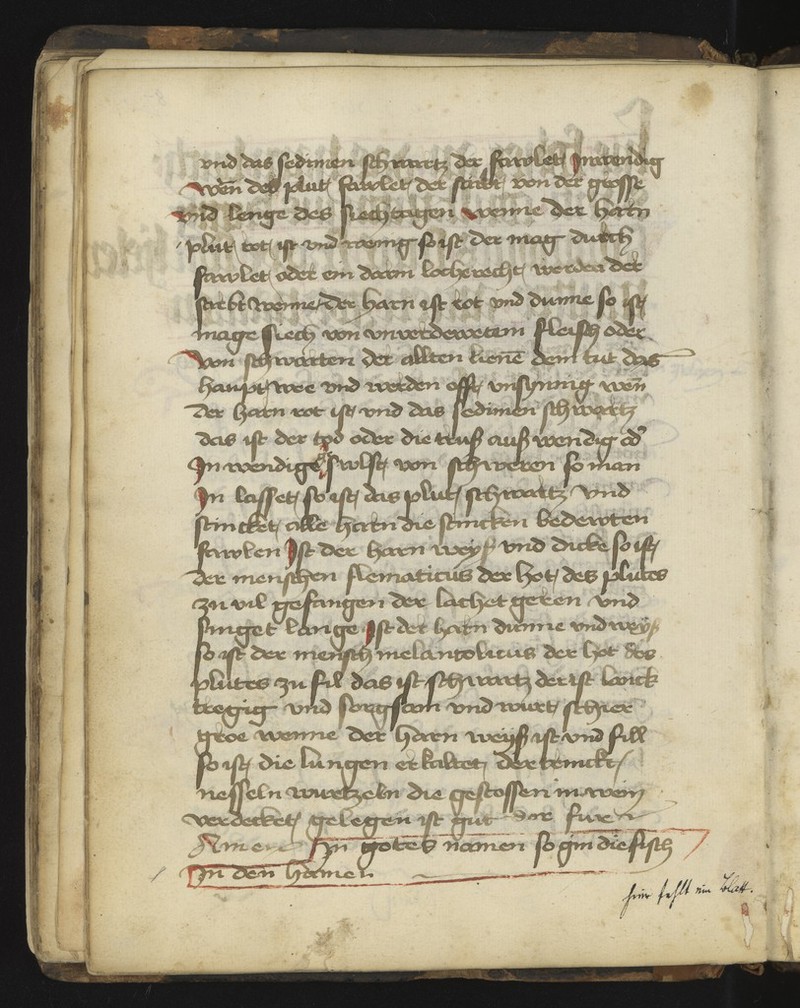 vnd das sedimen schwartz der fawlet Inwendig
Wen̄ des plut fawlet der stirbt von der grosse
vnd lenge des siechtagen Wenne der harn
plut rot ist vnd wenig so ist der mag durch
fawlet oder ein darm locherecht worden der
stirbt Wenne der harn ist rot vnd dunne so ist
mage siech von vnverdewetem fleisch oder
Von schwarten der allten kuene dem tut das
haupt wee vnd werden offt vnsynnig wen̄
der harn rot ist vnd das sedimen schwertz
das ist der tod oder die truß auß wendig
In wendige swlst von schweren so man
In lasset so ist das plut schwartz vnd
stincket alle harn die stincken bedewten
fawlen Ist der harn weyß vnd dicke so ist
der menschen flematicus der hot des plutes
zu vil gefangen der lachet geren vnd
singet lange Ist der harn dunne vnd weyß
so ist der mensch melancolicus der hot des
plutes zu fil das ist schwartz der ist
tregig vnd sorgsam vnd wurt schier
groe wenne der harn weyß ist vnd fill
so ist die lungen erkaltet der trinckt
nesseln wurtzeln die gestossen in wein
verdecket gelegen ist gut
Amen In gotes namen so gin die fisch
In den hamen
hier fehlt ein Blatt.